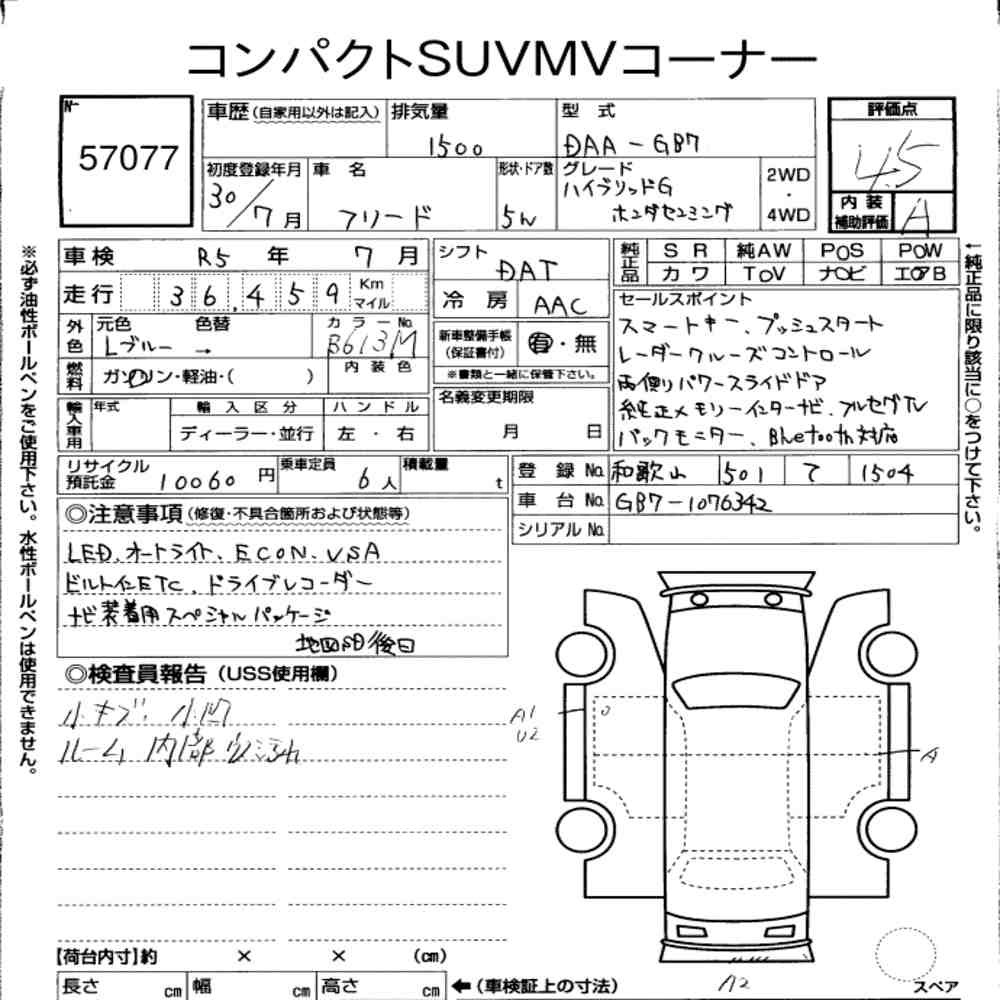 コンパクトSUVMVコーナー
No.
57077
車歴(自家用以外は記入) 排気量 1500 型式 DAA-GB7 評価点 4.5
初度登録年月 30/7月 車名 フリード 形状・ドア数 5W グレード ハイブリッドG ホンダセンシング 2WD・4WD 内装補助評価 A
車検 R5年 7月 シフト DAT 純正品 SR 純AW POS POW
カワ TOV ナビ エアB
走行 36,459 Km マイル 冷房 AAC
外色 元色 Lブルー → 色替 カラーNo. B613M
燃料 ガソリン・軽油・( ) 内装色
新車整備手帳(保証書付) 有・無
※書類と一緒に保管下さい。
輸入車用 年式 輸入区分 ディーラー・並行 ハンドル 左・右
名義変更期限 月 日
セールスポイント
スマートキー、プッシュスタート
レーダークルーズコントロール
両側パワースライドドア
純正メモリーインターナビ、フルセグTV
バックモニター、Bluetooth対応
リサイクル預託金 10060円 乗車定員 6人 積載量 t
登録No. 和歌山 501 て 1504
車台No. GB7-1076342
シリアルNo.
◎注意事項(修復・不具合箇所および状態等)
LED、オートライト、ECON、VSA
ビルトインETC、ドライブレコーダー
ナビ装着用スペシャルパッケージ
地図SD後日
◎検査員報告(USS使用欄)
小キズ、小凹
ルーム内部
A1
U2
A
A2
スペア
【荷台内寸】約 × × (cm)
長さ cm 幅 cm 高さ cm ←(車検証上の寸法)
※必ず油性ボールペンをご使用下さい。水性ボールペンは使用できません。
←純正品に限り該当に○をつけて下さい。